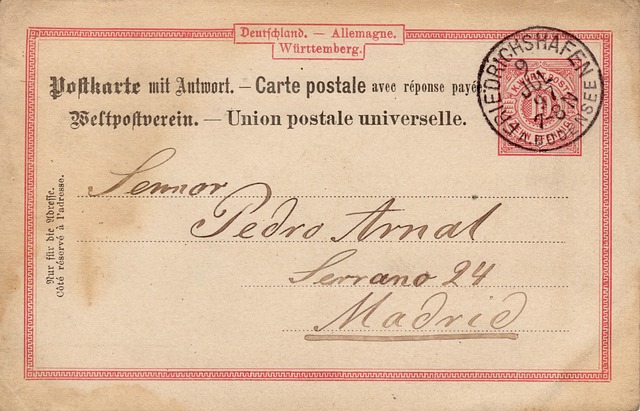 Deutschland. — Allemagne.
Württemberg.
Postkarte mit Antwort. — Carte postale avec réponse payée
Weltpostverein. — Union postale universelle.
FRIEDRICHSHAFEN
9
JUL
91
BODENSEE
Nur für die Adresse.
Côté réservé à l'adresse.
Sennor
Pedro Arnal
Serrano 24
Madrid